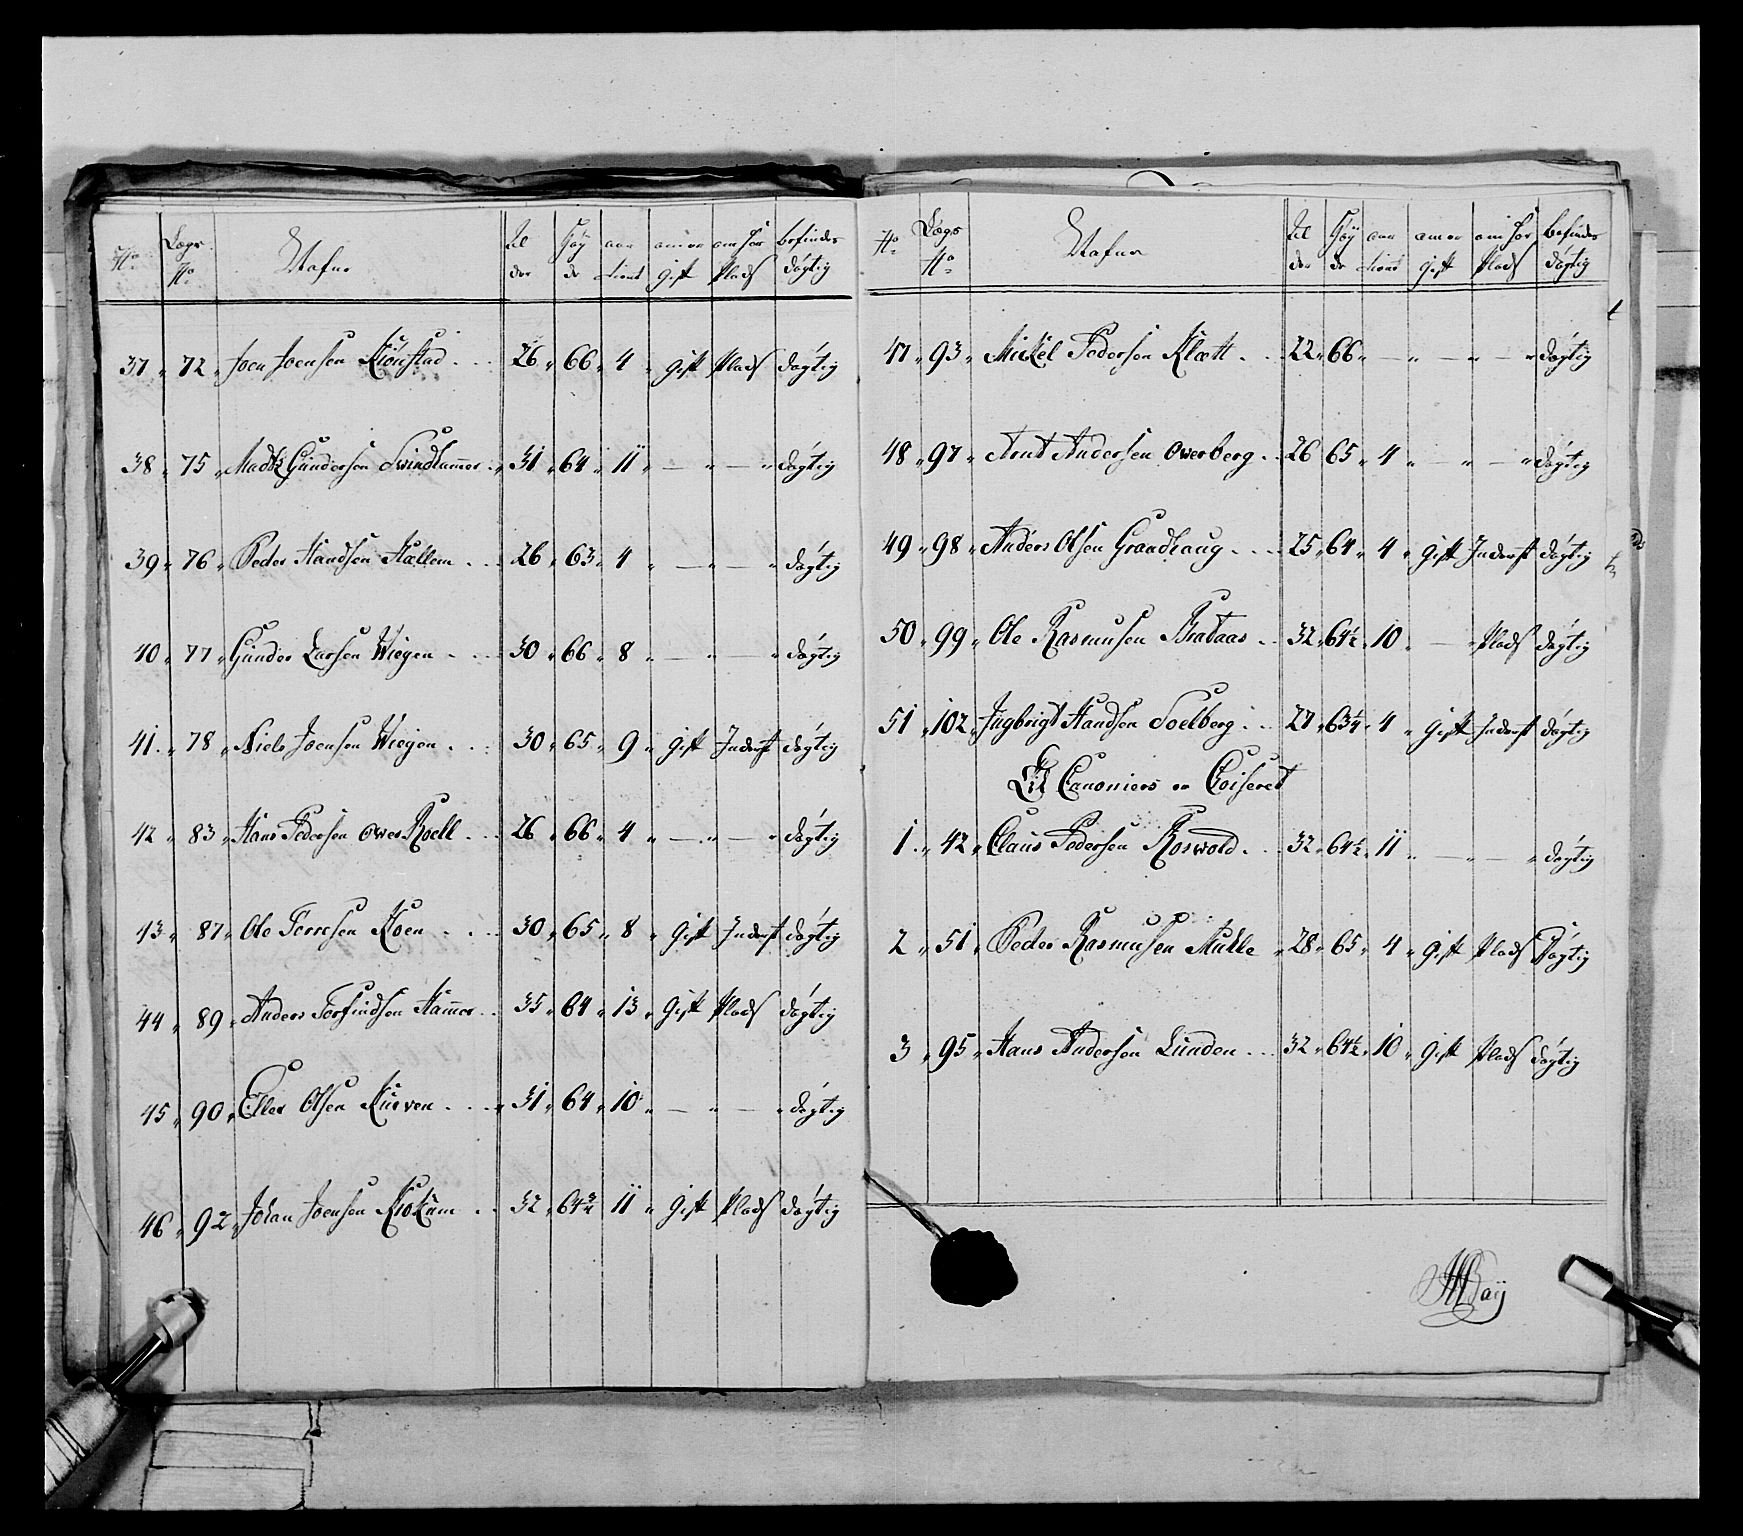 No Lægs No Nafne Al der Høy de aar tient om er gift om har Plads befindes dygtig
37 72 Joen Joensen Kiönstad 26 66 4 gift Plads dÿgtig
38 75 Madtz Gundersen Svindhammer 31 64 11 — — dÿgtig
39 76 Peder Handsen Hallem 26 63 4 — — dÿgtig
40 77 Gunder Larsen Wiegen 30 66 8 — — dÿgtig
41 78 Niels Joensen Wiegen 30 65 9 gift Inderst dÿgtig
42 83 Hans Pedersen Ower Roell 26 66 4 — — dÿgtig
43 87 Ole Torresen Moen 30 65 8 gift Inderst dÿgtig
44 89 Anders Torfindsen Hammer 35 64 13 gift Plads dÿgtig
45 90 Eller Olsen Kurven 31 64 10 — — dÿgtig
46 92 Johan Joensen 32 64¾ 11 gift Plads dÿgtig
No Lægs No Nafne Al der Høÿ de aar tient om er gift om har Plads befindes dÿgtig
47 93 Mickel Pedersen Klæt 22 66 — — — dÿgtig
48 97 Arnt Andersen Owerberg 26 65 4 — — dÿgtig
49 98 Anders Olsen Grandhaug 25 64 4 gift Inderst dÿgtig
50 99 Ole Rasmusen Brataas 32 64½ 10 — Plads dÿgtig
51 102 Ingbrigt Handsen Soelberg 27 63¼ 4 gift Inderst dÿgtig
Til Canoniers er Coiseret
1 42 Claus Pedersen Roswold 32 64½ 11 — — dÿgtig
2 51 Peder Rasmusen Mulle 28 65 4 gift Plads Dÿgtig
3 95 Hans Andersen Lunden 32 64½ 10 gift Plads dÿgtig